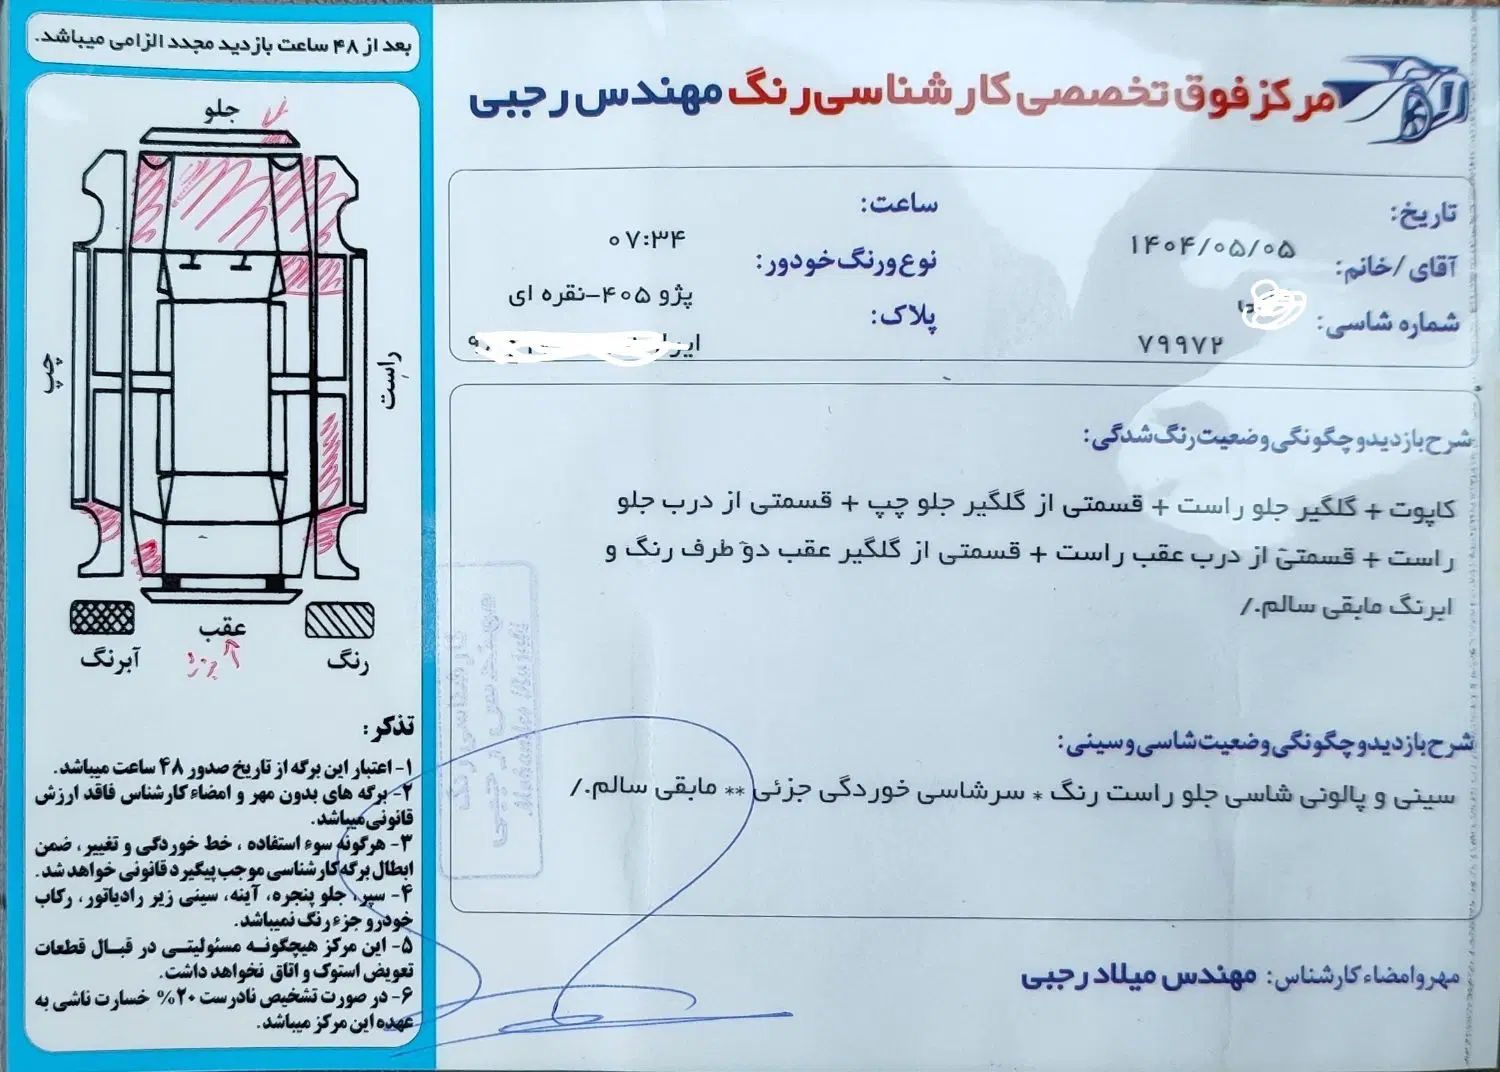 بعد از ۴۸ ساعت بازدید مجدد الزامی میباشد.
مرکز فوق تخصصی کارشناسی رنگ مهندس رجبی
تاریخ:
۱۴۰۴/۰۵/۰۵
ساعت:
۰۷:۳۴
آقای /خانم:
نوع ورنگ خودور:
پژو ۴۰۵-نقره ای
شماره شاسی:
۷۹۹۷۲
پلاک:
شرح بازدید و چگونگی وضعیت رنگ شدگی:
کاپوت + گلگیر جلو راست + قسمتی از گلگیر جلو چپ + قسمتی از درب جلو
راست + قسمتی از درب عقب راست + قسمتی از گلگیر عقب دو طرف رنگ و
ابرنگ مابقی سالم./
شرح بازدید و چگونگی وضعیت شاسی و سینی:
سینی و پالونی شاسی جلو راست رنگ * سرشاسی خوردگی جزئی ** مابقی سالم./
مهر و امضاء کارشناس: مهندس میلاد رجبی
جلو
چپ
راست
عقب
آبرنگ
رنگ
تذکر:
۱- اعتبار این برگه از تاریخ صدور ۴۸ ساعت میباشد.
۲- برگه های بدون مهر و امضاء کارشناس فاقد ارزش
قانونی میباشد.
۳- هرگونه سوء استفاده ، خط خوردگی و تغییر، ضمن
ابطال برگه کارشناسی موجب پیگیرد قانونی خواهد شد.
۴- سپر، جلو پنجره، آینه، سینی زیر رادیاتور، رکاب
خودرو جزء رنگ نمیباشد.
۵- این مرکز هیچگونه مسئولیتی در قبال قطعات
تعویض استوک و اتاق نخواهد داشت.
۶- در صورت تشخیص نادرست ۲۰% خسارت ناشی به
عهده این مرکز میباشد.
کارشناسی رنگ
مهندس رجبی